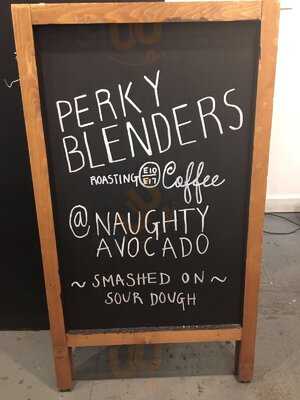 PERKY
BLENDERS
ROASTING E10 E17 Coffee
@ NAUGHTY
AVOCADO
~ SMASHED ON ~
SOUR DOUGH